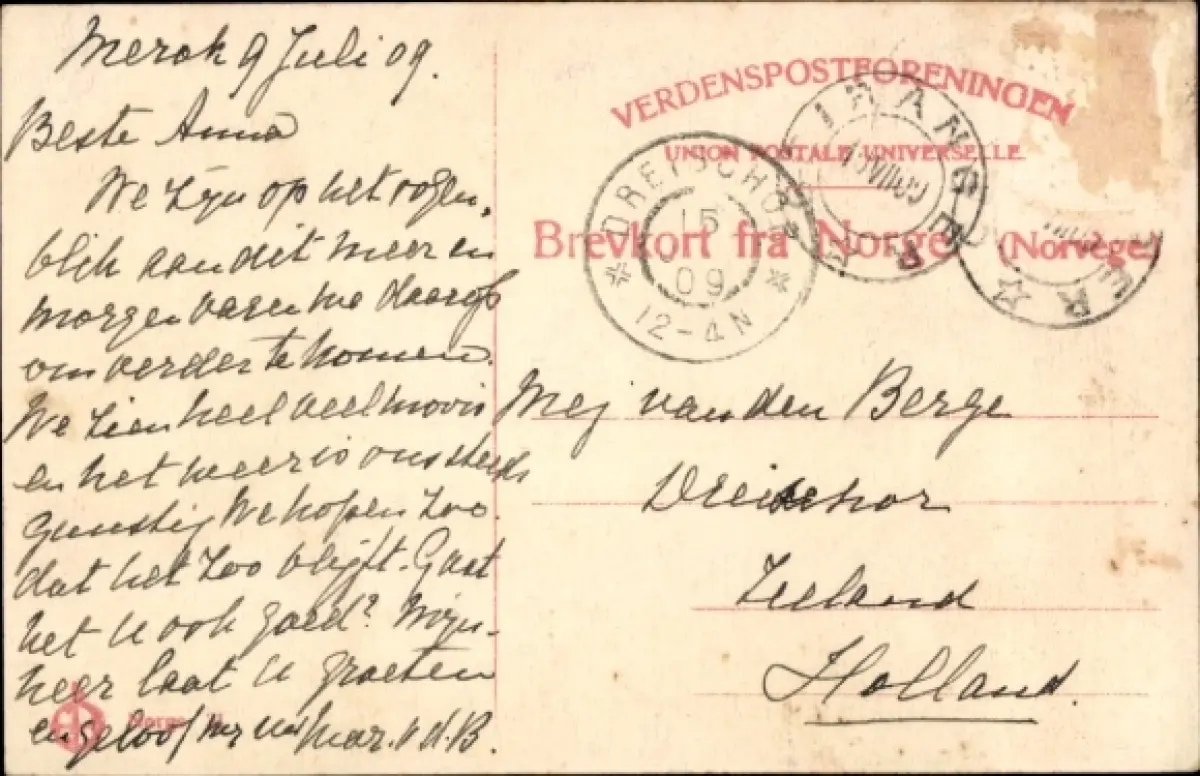 Merok 9 Juli 09.
Beste Anna
We zijn op het oogen-
blik aan dit meer en
morgen varen we daarop
om verder te komen.
We zien heel veel moois
en het weer is ons steeds
gunstig We hopen zoo
dat het zoo blijft. Gaat
het U ook goed? Mijn-
heer laat U groeten
en geloof mij uw Mar. v. d. B.
VERDENSPOSTFORENINGEN
UNION POSTALE UNIVERSELLE
Brevkort fra Norge (Norvège)
DREISCHOR
15
09
12-4N
GEIRANGER
VII 09
ER
Mej van den Berge
Dreischor
Zeeland
Holland.